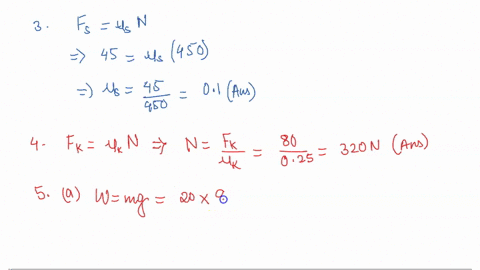 3. Fs = μs N
⇒ 45 = μs (450)
⇒ μs = 45/450 = 0.1 (Ans)
4. FK = μK N ⇒ N = FK/μK = 80/0.25 = 320 N (Ans)
5. (a) W = mg = 20 × 9